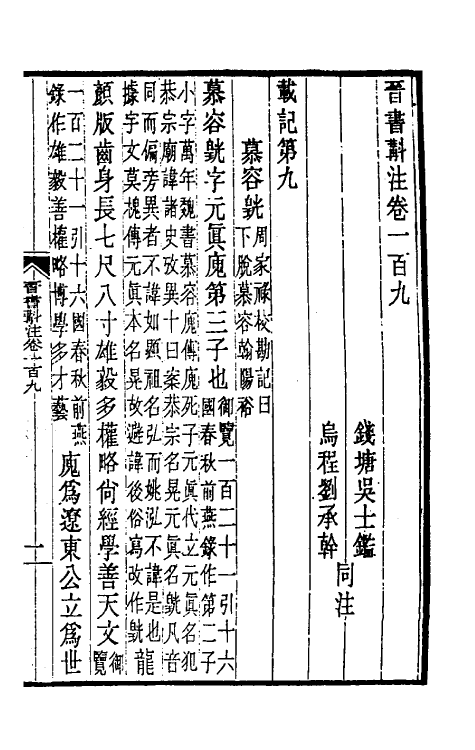 晉書斠注卷一百九
錢塘吳士鑑
烏程劉承幹
同注
載記第九
慕容皝周家祿校勘記曰
下脫慕容翰陽裕
慕容皝字元眞廆第三子也御覽一百二十一引十六
國春秋前燕錄作第二子
小字萬年魏書慕容廆傳廆死子元眞代立元眞名犯
恭宗廟諱諸史攷異十曰案恭宗名晃元眞名皝凡音
同而偏旁異者不諱如顯祖名弘而姚泓不諱是也
據宇文莫槐傳元眞本名晃故避諱後俗寫改作皝龍
顏版齒身長七尺八寸雄毅多權略尙經學善天文御
覽
一百二十一引十六國春秋前燕
錄作雄毅善權略博學多才藝
廆爲遼東公立爲世
晉書斠注卷一百九
一